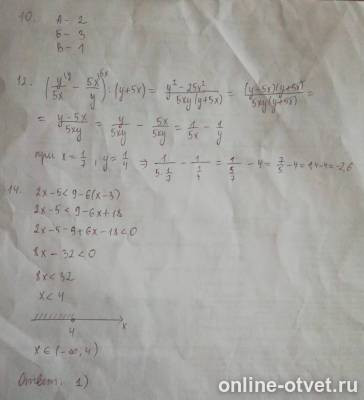 10. А - 2
Б - 3
В - 1
12. (y^{1y}/5x - 5x^{5x}/y) : (y+5x) = (y² - 25x²)/(5xy(y+5x)) = ((y-5x)(y+5x))/(5xy(y+5x)) =
= (y-5x)/5xy = y/5xy - 5x/5xy = 1/5x - 1/y
при x = 1/7, y = 1/4 ⇒ 1/(5·1/7) - 1/(1/4) = 1/(5/7) - 4 = 7/5 - 4 = 1,4-4 = -2,6
14. 2x - 5 < 9 - 6(x - 3)
2x - 5 < 9 - 6x + 18
2x - 5 - 9 + 6x - 18 < 0
8x - 32 < 0
8x < 32
x < 4
4 x
x ∈ (-∞, 4)
Ответ: 1)
online-otvet.ru